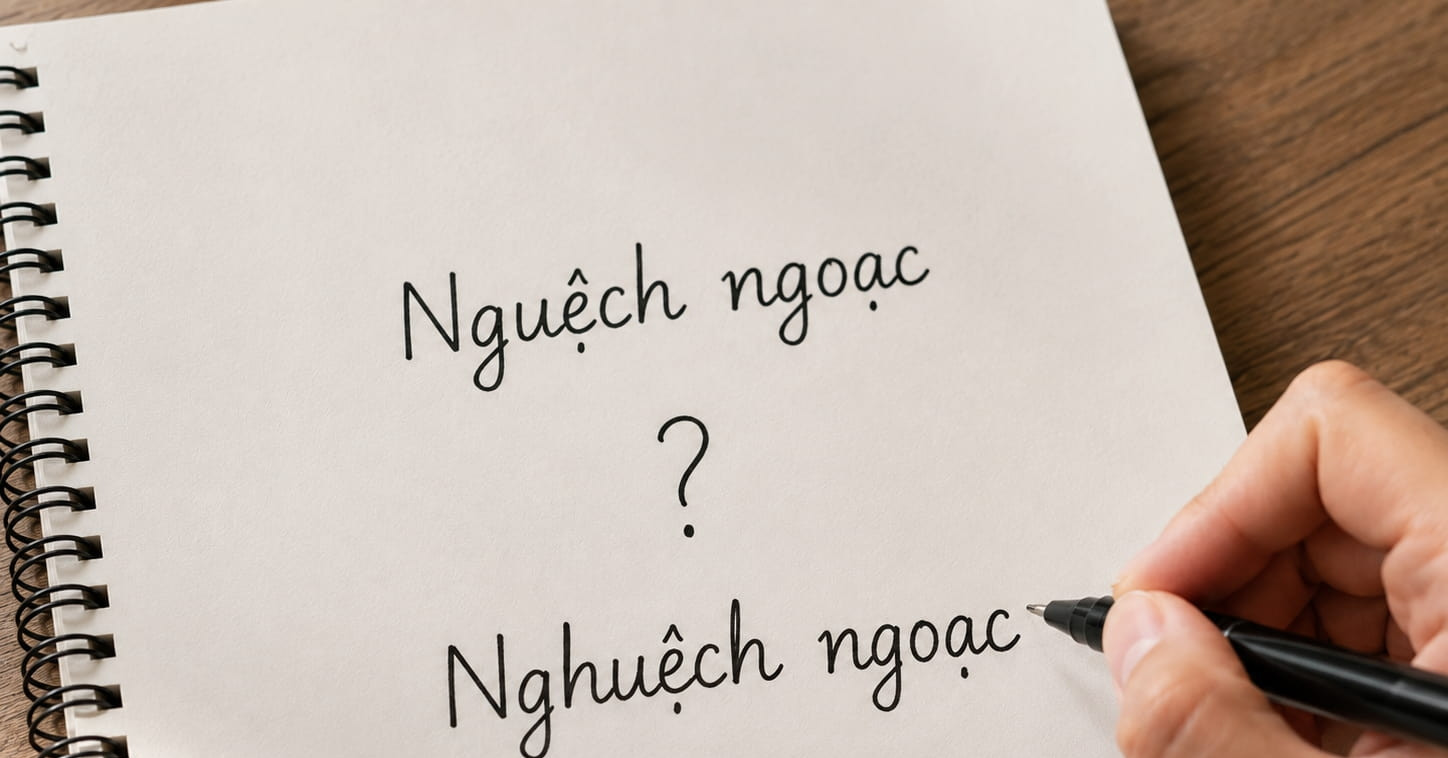 Nguệch ngoạc
?
Nghuệch ngoạc